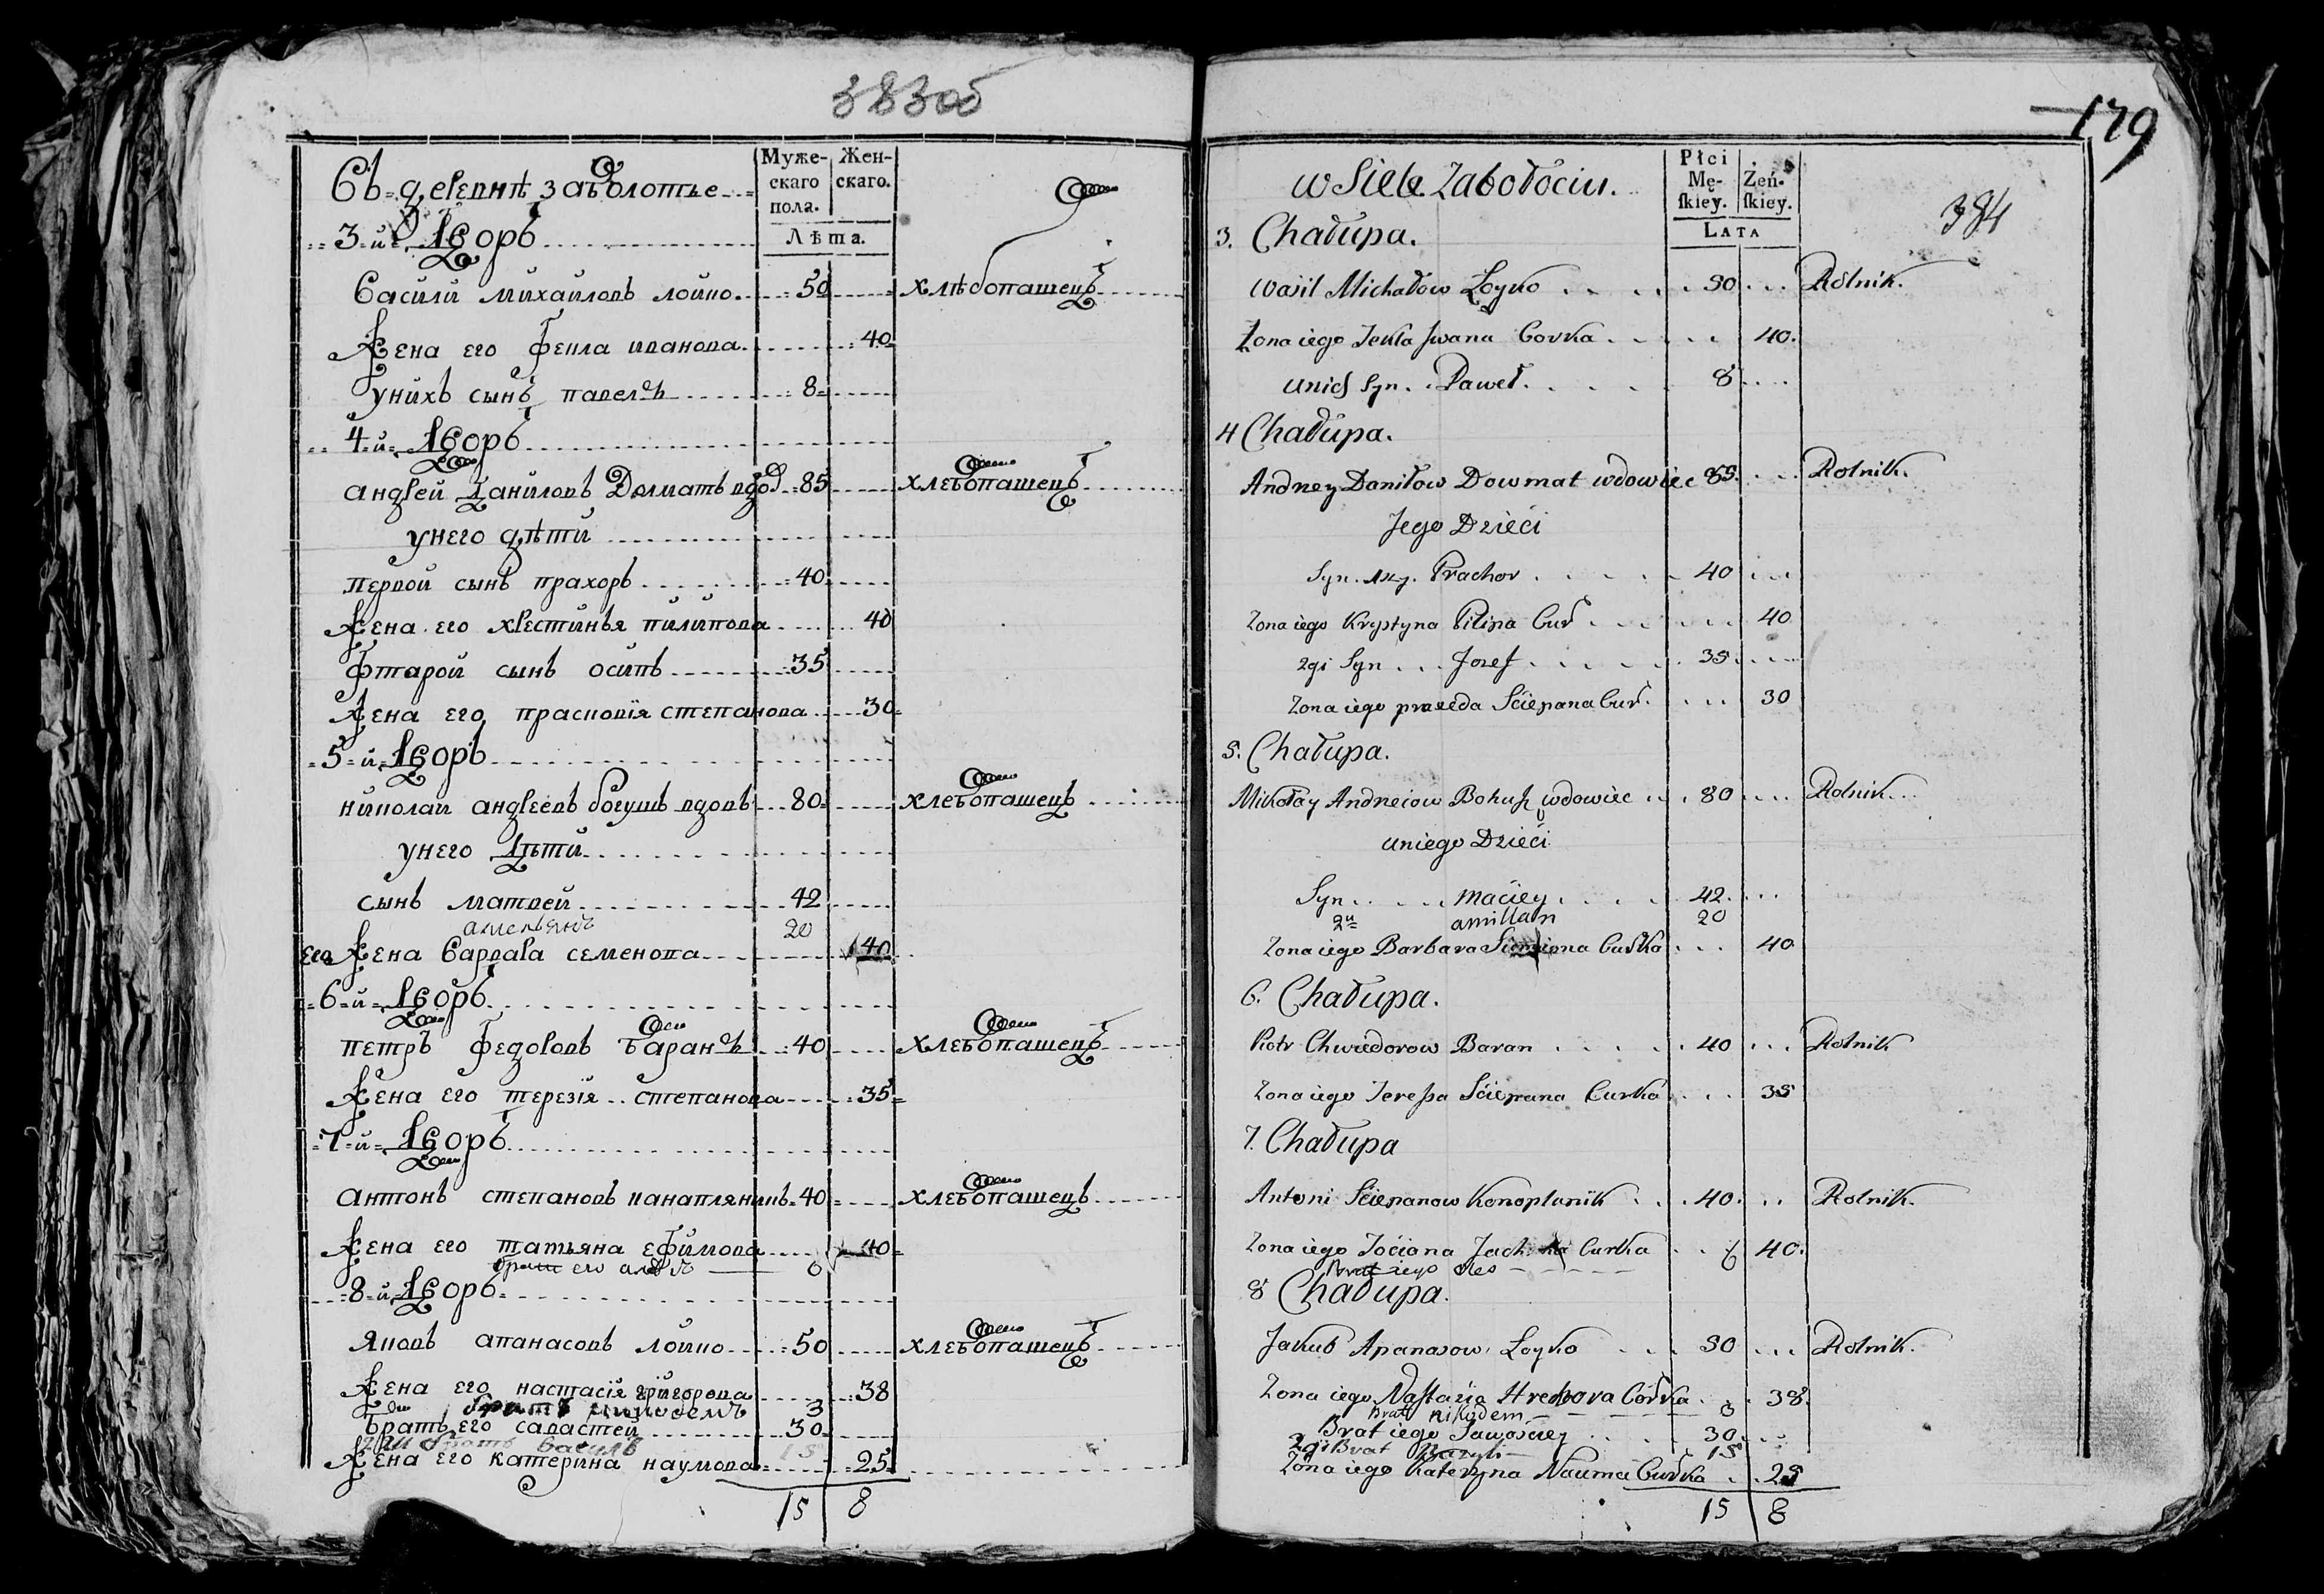 383об
Въ деревнѣ заболотье
Муже-
скаго
пола.
Жен-
скаго.
Лѣта.
3-й Дворъ
Василй михайловъ лойко 50 хлѣбопашецъ
Жена его фекла иванова 40
у нихъ сынъ павелъ 8
4-й Дворъ
андрей Даниловъ Долматъ вдов 85 хлебопашецъ
у него дѣти
первой сынъ прахоръ 40
Жена его хрестинья пилипова 40
фтарой сынъ осипъ 35
Жена его прасковїя степанова 30
5-й Дворъ
николай андреевъ богушъ вдовъ 80 хлебопашецъ
у него Дѣти
сынъ матвей 42
амельянъ 20
его Жена Варвара семенова 40
6-й Дворъ
петръ федоровъ баранъ 40 хлебопашецъ
Жена его терезія степанова 35
7-й Дворъ
антонъ степановъ канапляникъ 40 хлебопашецъ
Жена его татьяна ефимова 40
братъ его 6
8-й Дворъ
яковъ апанасовъ лойко 50 хлебопашецъ
Жена его настасія григорова 38
братъ никодемъ 3
братъ его савастей 30
2й братъ василь 15
Жена его катерина наумова 25
15 8
179
384
w Siele Zabołociu.
Płci
Mę-
skiey.
Żeń-
skiey.
LATA
3. Chałupa.
Wasil Michałow Łoyko 50 Rolnik.
Zona iego Tekla Jwana Corka 40.
u nich Syn Paweł 8
4 Chałupa.
Andrzey Daniłow Dowmat wdowiec 85 Rolnik.
Jego Dzieci
Syn 1szy. Prachor 40
Zona iego Krystyna Pilipa Cur 40
2gi Syn Jozef 35
Zona iego praxeda Sciepana Cur. 30
5. Chałupa.
Mikołay Andreiow Bohusz wdowiec 80 Rolnik.
u niego Dzieci
Syn maciey 42
2й amillan 20
Zona iego Barbara Siemiona Curka 40
6. Chałupa.
Piotr Chwiedorow Baran 40 Rolnik
Zona iego Teressa Sciepana Curka 35
7. Chałupa
Antoni Sciepanow Konoplanik 40 Rolnik.
Zona iego Tociana Curka 40.
Brat iego Ales 6
8 Chałupa.
Jakub Apanasow Łoyko 50 Rolnik.
Zona iego Nastazia Hrehora Corka 38.
Brat nikodem 3
Brat iego Sawosciey 30
2gi Brat Bazyli 15
Zona iego Katerzyna Nauma Curka 25
15 8